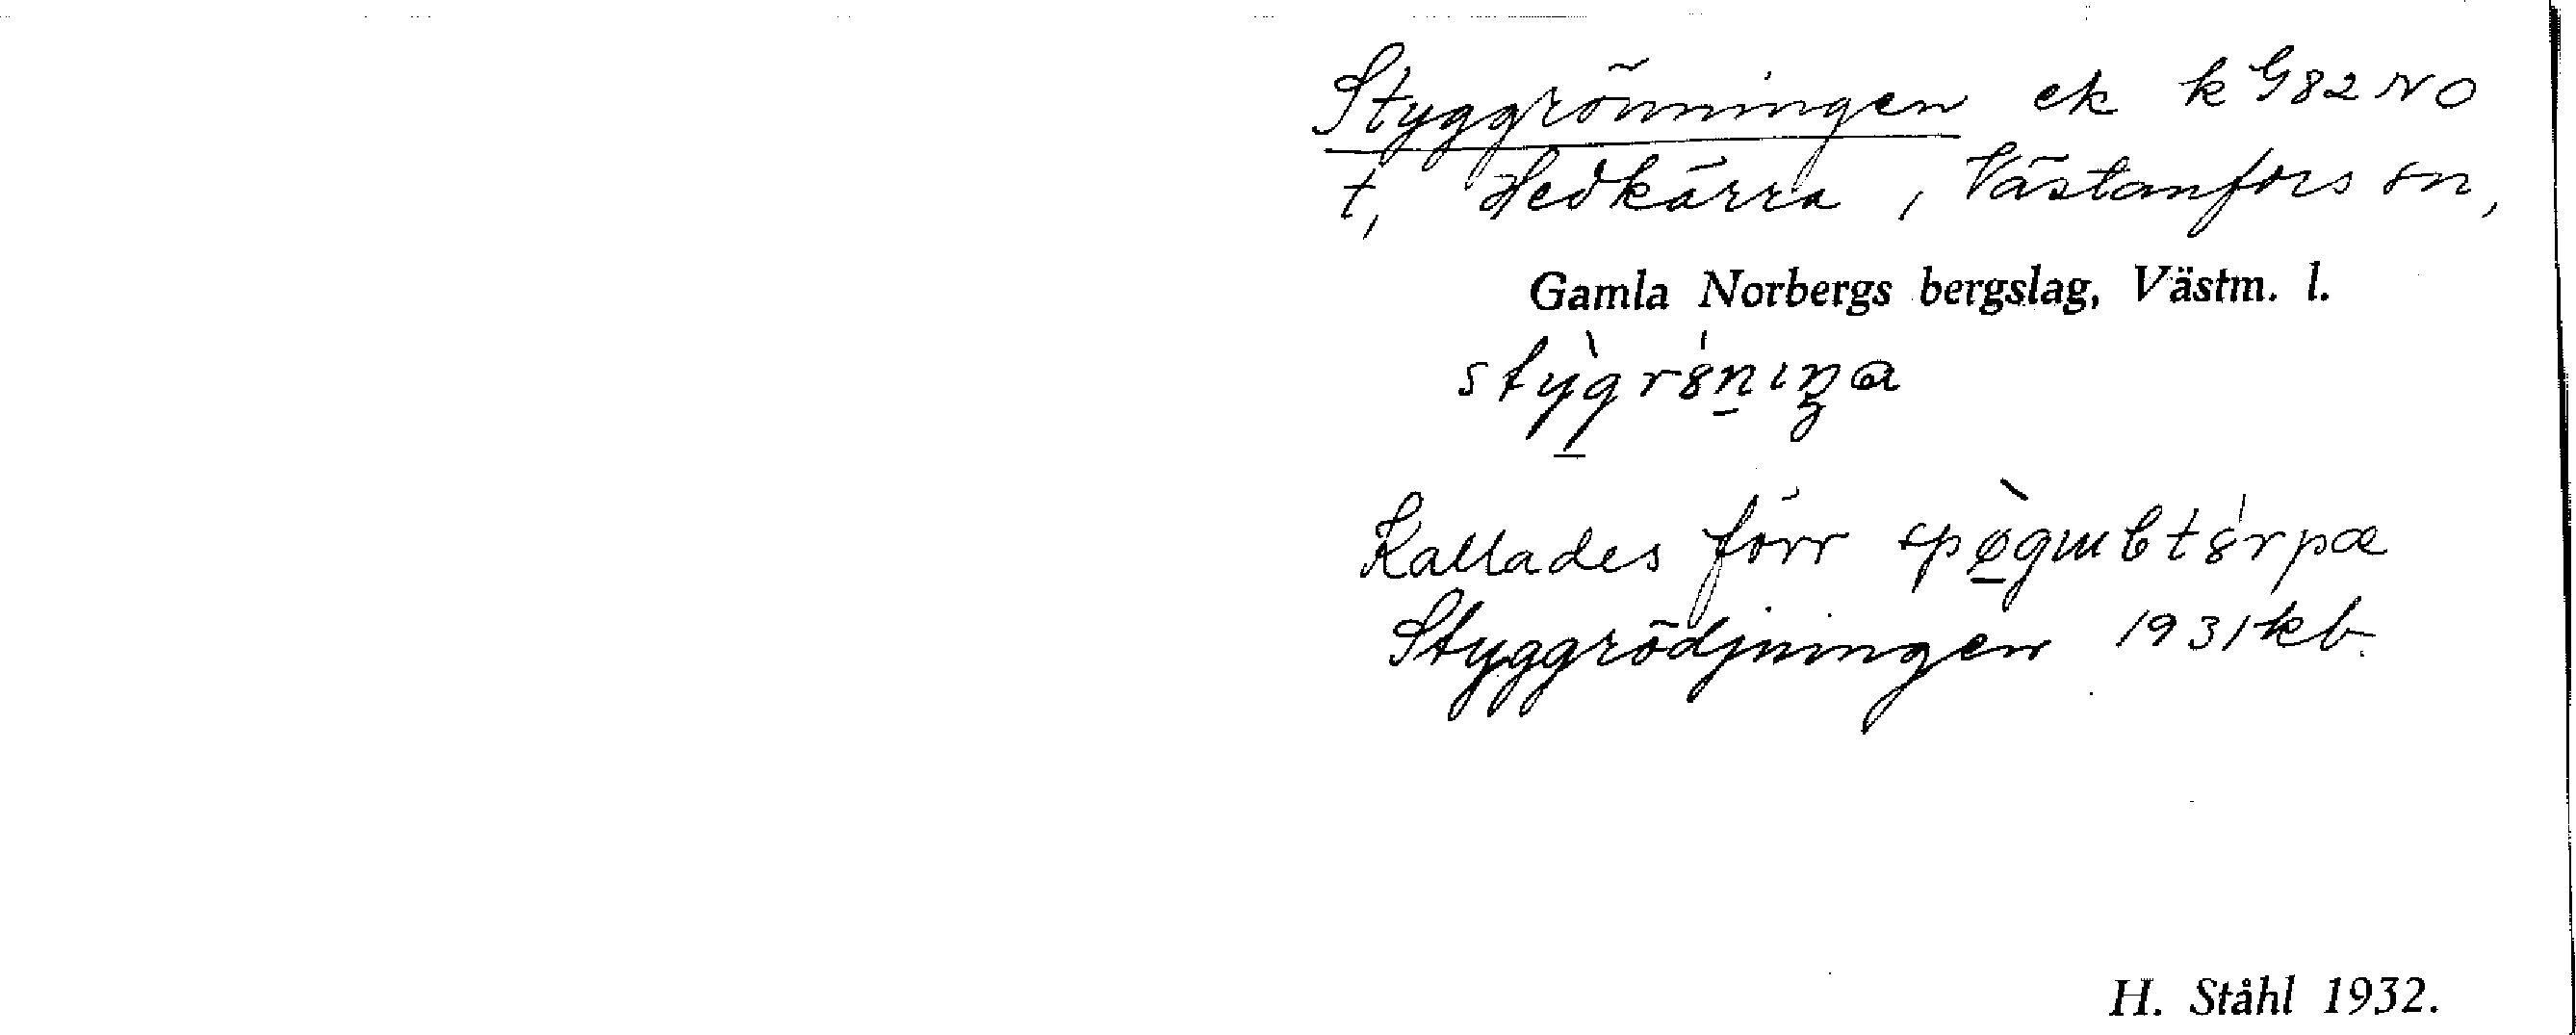 Styggrönningen ek k G82 NO
t, Hedkärra, Västanfors sn,
Gamla Norbergs bergslag, Västm. l.
Kallades förr
Styggrödjningen 1931 kb.
H. Ståhl 1932.